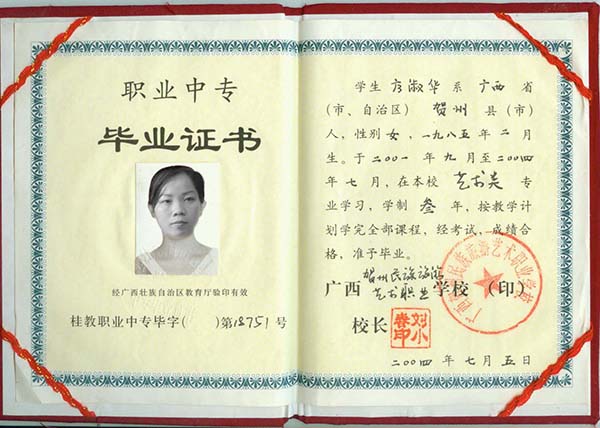 职业中专
毕业证书
经广西壮族自治区教育厅验印有效
桂教职业中专毕字( )第18751号
学生 方淑华 系 广西 省
(市、自治区) 贺州 县(市)
人，性别 女，一九八五年 二月
生。于二00一 年 九 月至二00四
年 七 月，在本校 艺术类 专
业学习，学制 叁 年，按教学计
划学完全部课程，经考试，成绩合
格，准予毕业。
广西 贺州民族旅游艺术职业 学校 (印)
校长 刘小春印
二00四 年 七 月 五 日